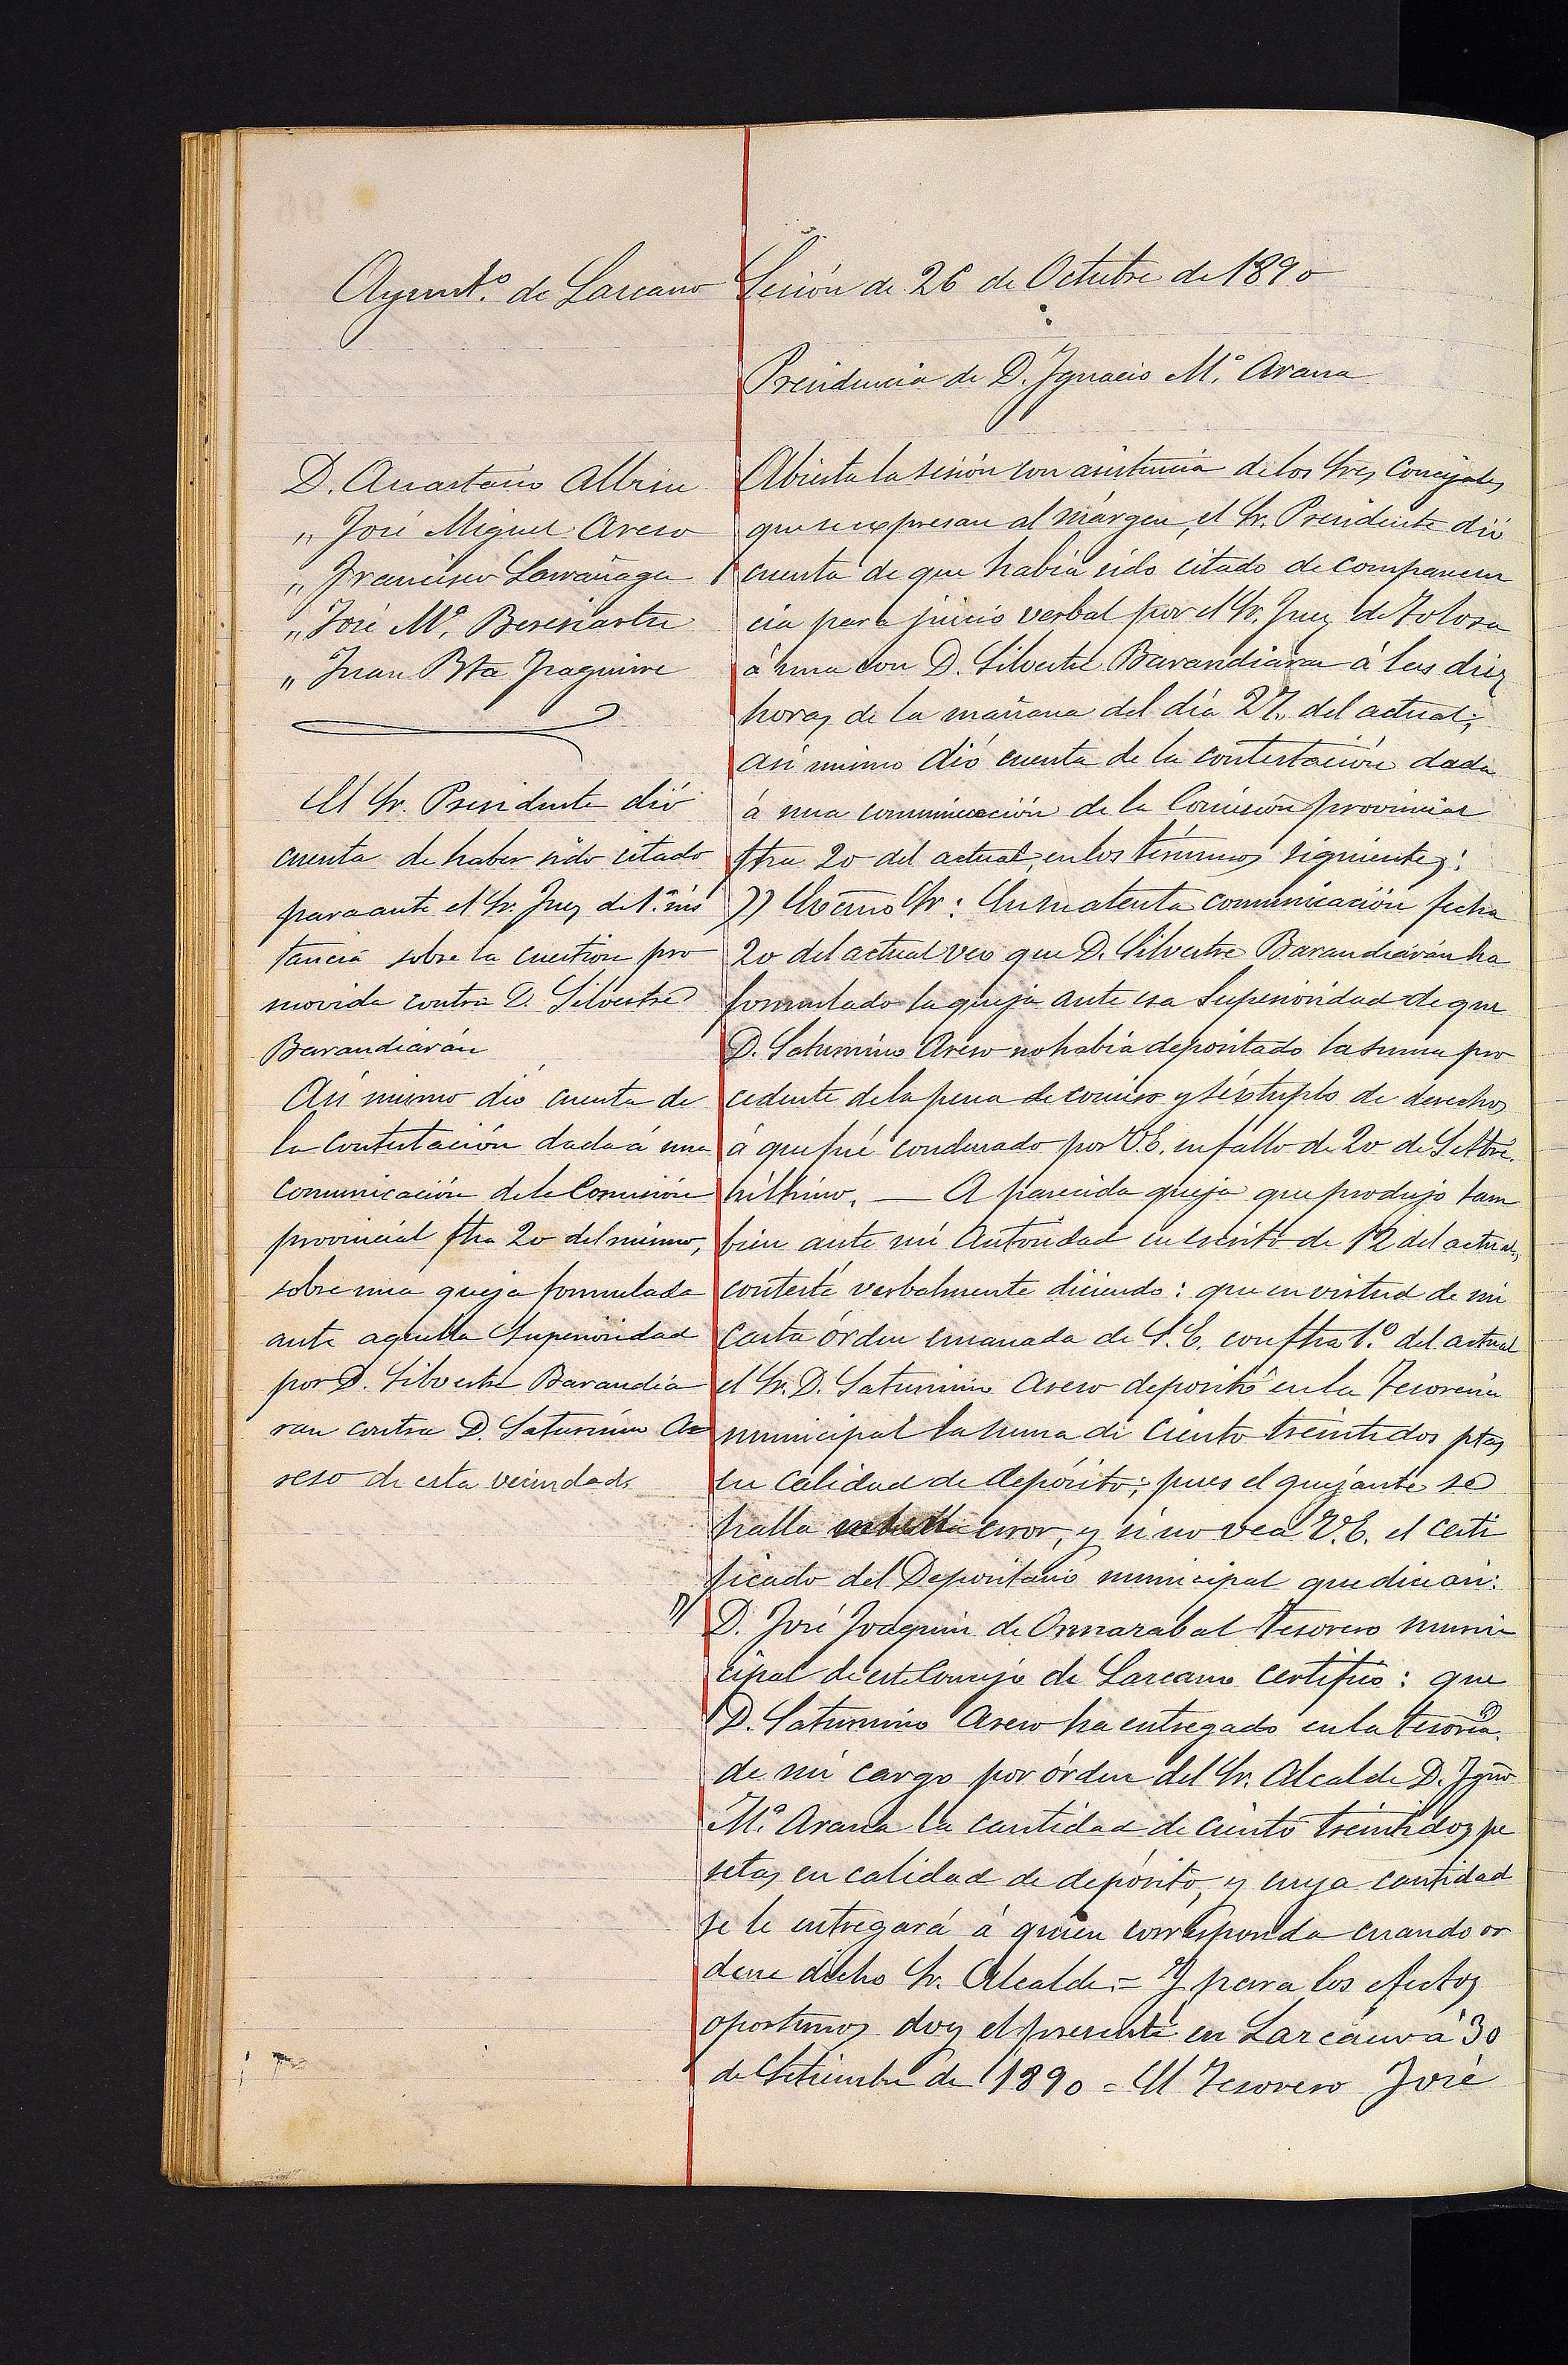 Ayunt.º de Lazcano
Sesión de 26 de Octubre de 1890
Presidencia de D. Ignacio M.ª Arana
D. Anastasio Albisu
" José Miguel Areso
" Francisco Larrañaga
" José M.ª Beresiartu
" Juan Bta Iraguirre
El Sr. Presidente dió
cuenta de haber sido citado
para ante el Sr. Juez de 1.ª ins
tancia sobre la cuestion pro
movida contra D. Silvestre
Barandiarán
Así mismo dió cuenta de
la contestación dada á una
comunicación de la Comisión
provincial fha 20 del mismo,
sobre una queja formulada
ante aquella Superioridad
por D. Silvestre Barandia
ran contra D. Saturnino A
reso de esta vecindad.
Abierta la sesión con asistencia de los Sres Concejales
que se expresan al márgen, el Sr. Presidente dió
cuenta de que había sido citado de comparecen
cia para juicio verbal por el Sr. Juez de Tolosa
á una con D. Silvestre Barandiaran á las diez
horas de la mañana del día 27,, del actual;
así mismo dió cuenta de la contestación dada
á una comunicación de la Comisión provincial
fha 20 del actual, en los términos siguientes:
)) Excmo Sr: En su atenta comunicación fecha
20 del actual veo que D. Silvestre Barandiarán ha
formulado la queja ante esa Superioridad de que
D. Saturnino Areso no había depositado la suma pro
cedente de la pena de comiso y séxtuplo de derechos
á que fué condenado por V.E. en fallo de 20 de Setbre.
último. — A parecida queja que produjo tam
bien ante mi Autoridad en escrito de 12 del actual,
contesté verbalmente diciendo: que en virtud de mi
carta órden emanada de S.E. con fha 1.º del actual
el Sr. D. Saturnino Areso depositó en la Tesorería
municipal la suma de ciento treintidos ptas
en calidad de depósito; pues el quejante se
halla error, y si no vea V.E. el certi
ficado del Depositario municipal que dice así:
)) D. José Joaquin de Ormazabal tesorero muni
cipal de este Concejo de Lazcano certifico: que
D. Saturnino Areso ha entregado en la tesorería
de mi cargo por órden del Sr. Alcalde D. Ignº
M.ª Arana la cantidad de ciento treintidos pe
setas en calidad de depósito, y cuya cantidad
se le entregará á quien corresponda cuando or
dene dicho Sr. Alcalde = Y para los efectos
oportunos doy el presente en Lazcano á 30
de Setiembre de 1890 = El Tesorero José